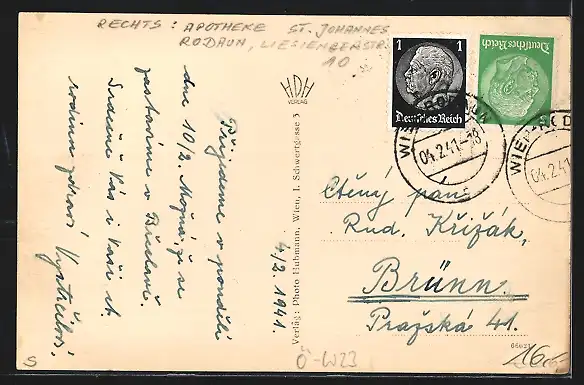 RECHTS: APOTHEKE ST. JOHANNES
RODAUN, LIESIENGERSTR.
10
Přijedeme v pondělí
dne 10/2. Možná, že se
zastavíme v Břeclavi.
Srdečně Vás i Vaši ct.
rodinu zdraví
4/2 1941.
HDH
VERLAG
Verlag: Photo Hubmann, Wien, 1. Schwertgasse 3
1
Deutsches Reich
Deutsches Reich
5
WIEN-RODAUN
04.2.41-18
WIEN-ROD
04.2.41
Ctěný pan
Rud. Křižák,
Brünn.
Pražská 41.
16
Ö-W23
S